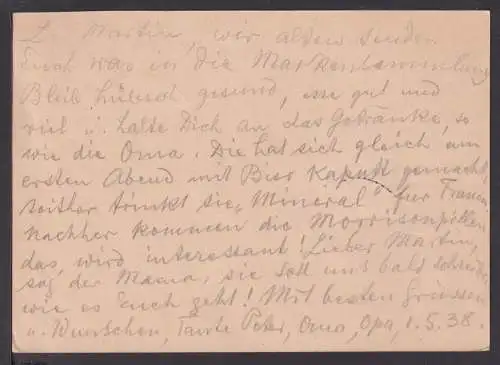 L. Martin, wir alten senden
Euch was in die Markensammlung
Bleib hübsch gesund, esse gut und
viel u. halte Dich an das Getränke, so
wie die Oma. Die hat sich gleich am
ersten Abend mit Bier kaputt gemacht,
seither trinkt sie „Mineral" für Frauen
Nachher kommen die Morrisonpillen
das wird interessant! Lieber Martin,
sag der Mama, sie soll uns bald schreiben
wie es Euch geht! Mit besten Grüssen
u. Wünschen, Tante Peter, Oma, Opa, 1.5.38.